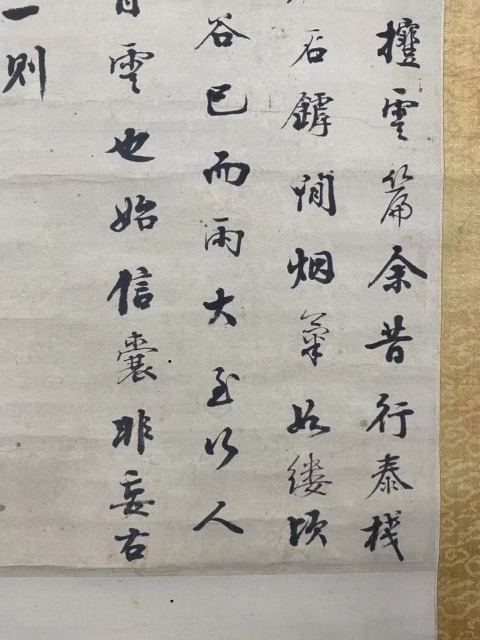 雲篇余昔行秦棧
石罅間烟氣如縷頃
谷已而雨大至行人
雲也始信囊非妄右
一則